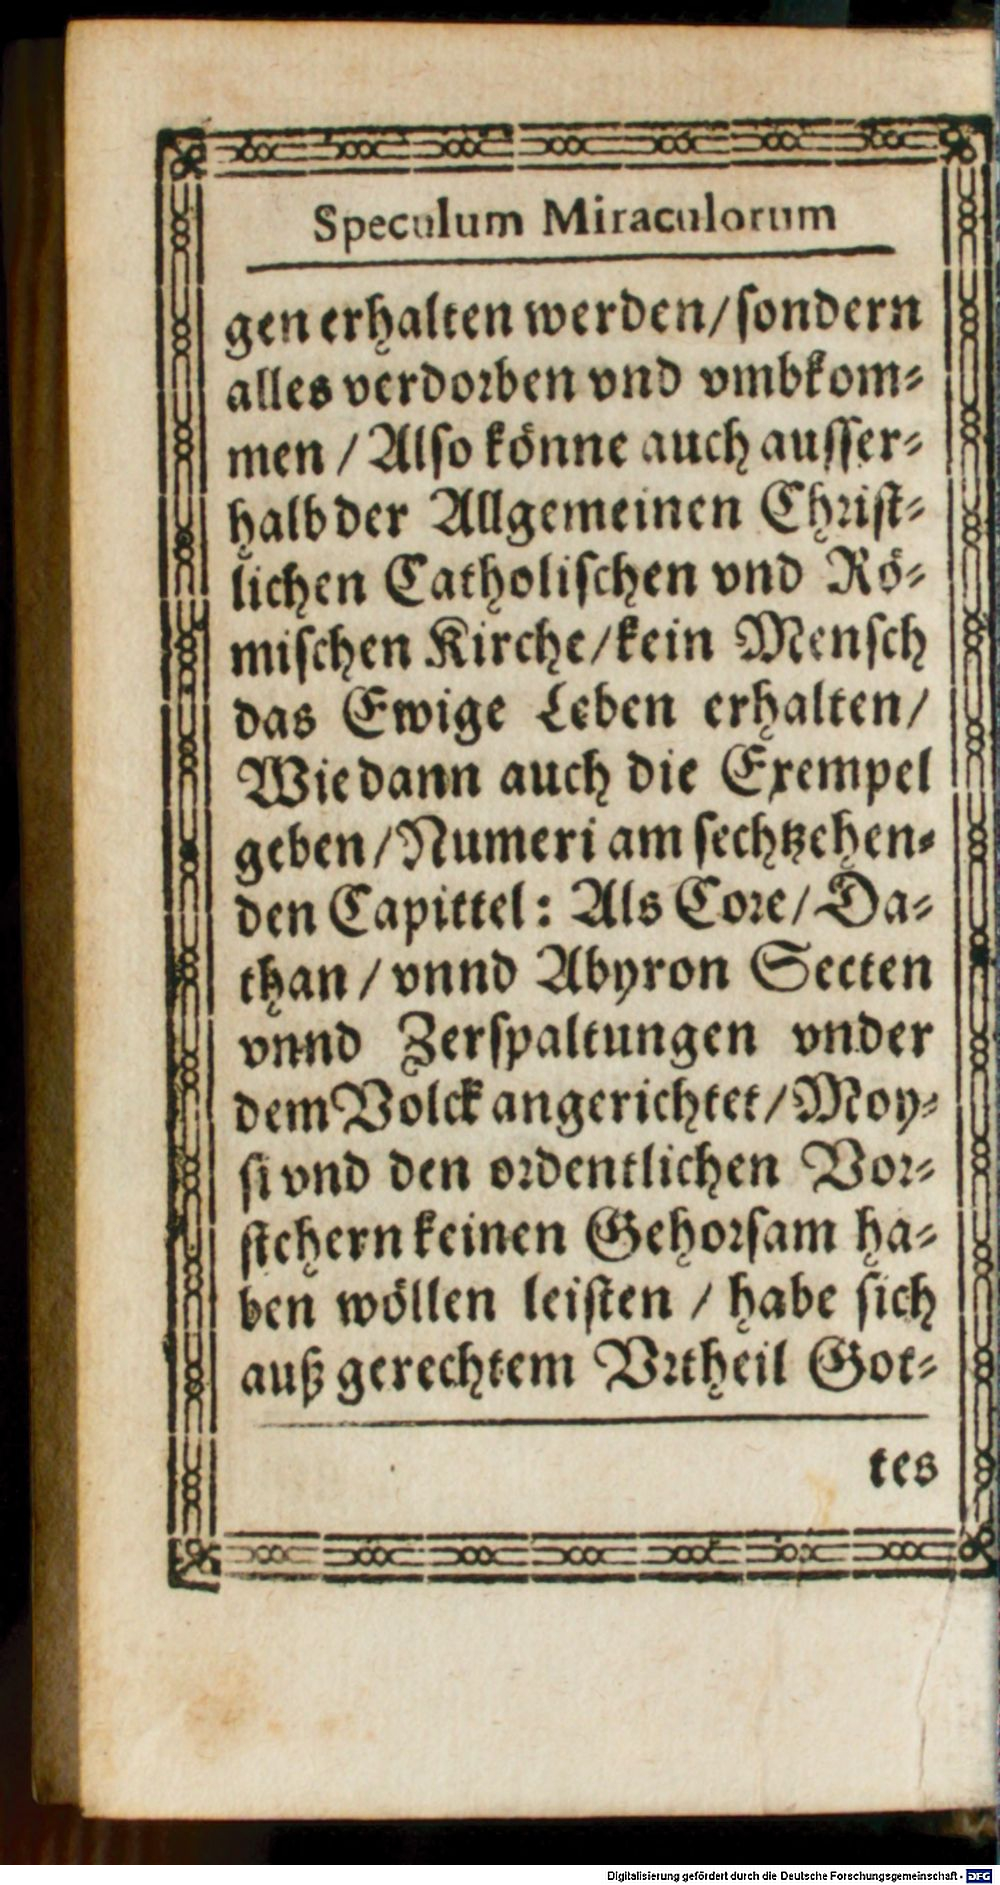 Speculum Miraculorum
gen erhalten werden/sondern
alles verdorben vnd vmbkom-
men / Also könne auch ausser-
halb der Allgemeinen Christ-
lichen Catholischen vnd Rö-
mischen Kirche/kein Mensch
das Ewige Leben erhalten/
Wie dann auch die Exempel
geben/Numeri am sechtzehen-
den Capittel: Als Core/Da-
than / vnnd Abyron Secten
vnnd Zerspaltungen vnder
dem Volck angerichtet/Moy-
si vnd den ordentlichen Vor-
stehern keinen Gehorsam ha-
ben wöllen leisten / habe sich
auß gerechtem Vrtheil Got-
tes
Digitalisierung gefördert durch die Deutsche Forschungsgemeinschaft - DFG